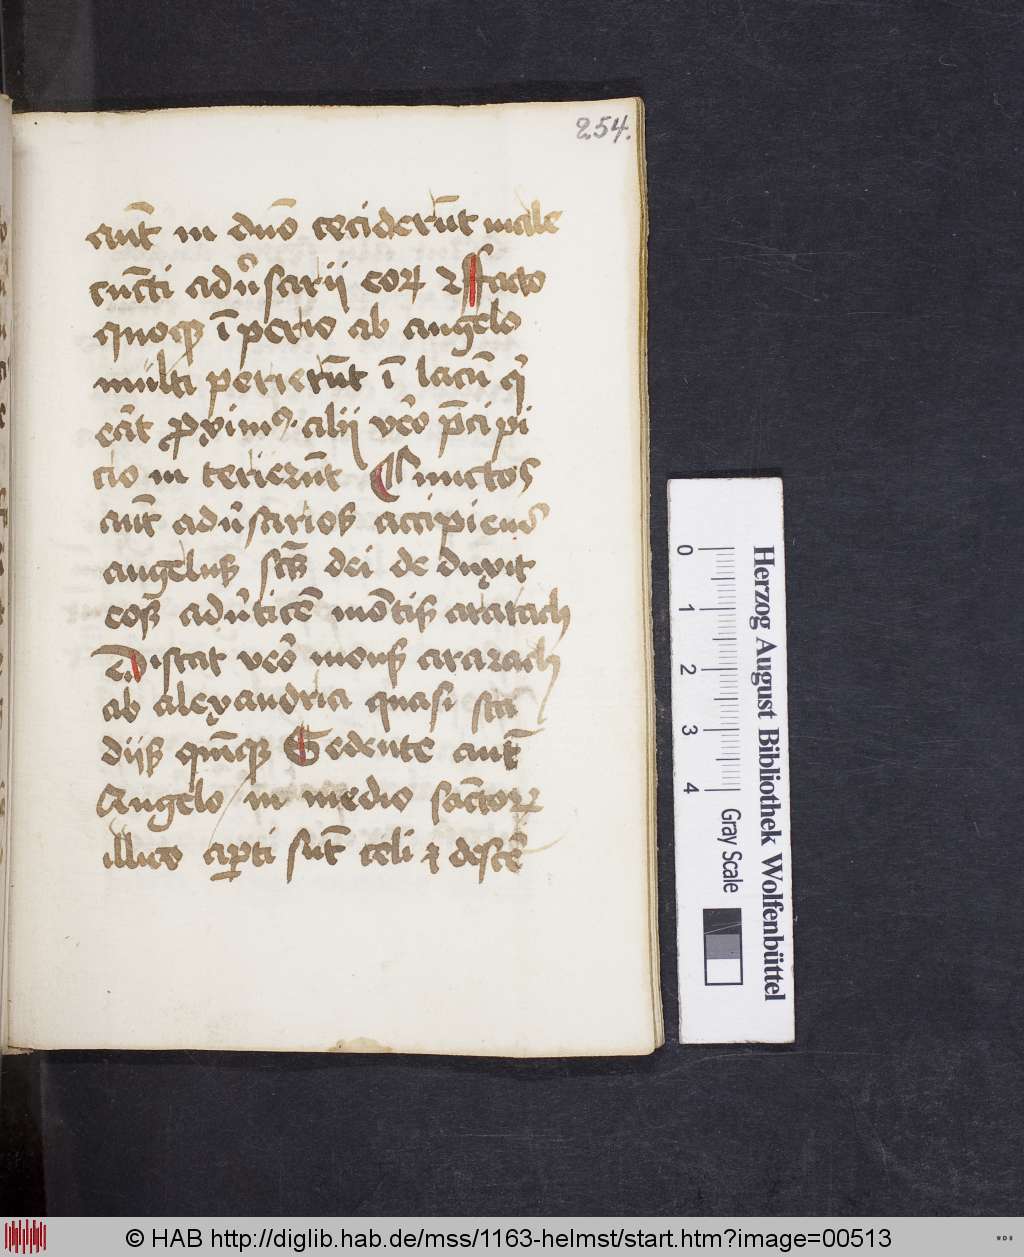 254.
aūt in duō cecider̄ūt male
cūcti adūsarii eoꝝ ⁊ ffacto
quoqꝫ ī perio ab angelo
multi perierūt ī lacū q̄
erāt ꝓximꝰ alii vēo p̄cipi
cio in terierūt Cunctos
aūt adūsarios accipiens
angelus sc̄s dei de duxit
eos adūticē mōtis ararach
Distat vēo mons ararach
ab alexandria quasi sta
diis quīqꝫ Sedente aūt
Angelo in medio sāctoꝝ
illico aꝑti sūt celi ⁊ descē
Herzog August Bibliothek Wolfenbüttel
0 1 2 3 4 Gray Scale
© HAB http://diglib.hab.de/mss/1163-helmst/start.htm?image=00513